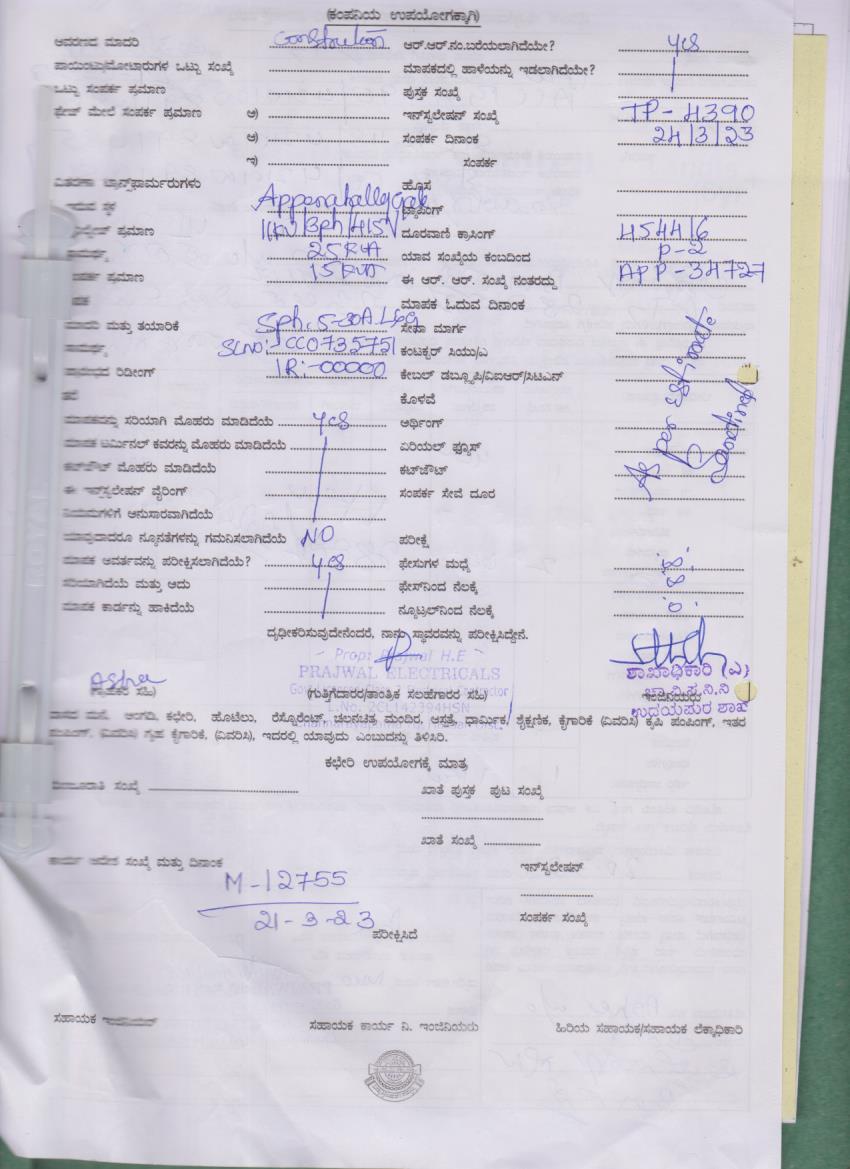 (ಕಂಪನಿಯ ಉಪಯೋಗಕ್ಕಾಗಿ)
ಆವರಣದ ಮಾದರಿ Construction ಆರ್.ಆರ್.ನಂ.ಬರೆಯಲಾಗಿದೆಯೇ? yes
ಪಾಯಿಂಟು/ಮೋಟಾರುಗಳ ಒಟ್ಟು ಸಂಖ್ಯೆ ಮಾಪಕದಲ್ಲಿ ಹಾಳೆಯನ್ನು ಇಡಲಾಗಿದೆಯೇ?
ಒಟ್ಟು ಸಂಪರ್ಕ ಪ್ರಮಾಣ ಪುಸ್ತಕ ಸಂಖ್ಯೆ
ಫೇಜ್ ಮೇಲೆ ಸಂಪರ್ಕ ಪ್ರಮಾಣ ಅ) ಇನ್‌ಸ್ಟಲೇಷನ್ ಸಂಖ್ಯೆ TP-4390
ಆ) ಸಂಪರ್ಕ ದಿನಾಂಕ 24/3/23
ಇ) ಸಂಪರ್ಕ
ವಿತರಣಾ ಟ್ರಾನ್ಸ್‌ಫಾರ್ಮರುಗಳು ಹೊಸ
ಇರುವ ಸ್ಥಳ Appenahally gate ಟ್ಯಾಪಿಂಗ್
ಪ್ರಮಾಣ 11KV/3ph/415V ದೂರವಾಣಿ ಕ್ರಾಸಿಂಗ್ 45446
25KVA ಯಾವ ಸಂಖ್ಯೆಯ ಕಂಬದಿಂದ P-2
ಪ್ರಮಾಣ 15KVA ಈ ಆರ್. ಆರ್. ಸಂಖ್ಯೆ ನಂತರದ್ದು APP-34727
ಮಾಪಕ ಓದುವ ದಿನಾಂಕ
ಮಾದರಿ ಮತ್ತು ತಯಾರಿಕೆ Sph. 5-30A. L&G ಸೇವಾ ಮಾರ್ಗ
SLno: CC0735751 ಕಂಟಕ್ಟರ್ ಸಿಯು/ಎ
ರೀಡಿಂಗ್ IR:-00000 ಕೇಬಲ್ ಡಬ್ಲ್ಯೂಪಿ/ವಿಐಆರ್/ಸಿಟಿಎನ್
ಕೊಳವೆ
ಮಾಪಕವನ್ನು ಸರಿಯಾಗಿ ಮೊಹರು ಮಾಡಿದೆಯೆ yes ಅರ್ಥಿಂಗ್
ಮಾಪಕ ಟರ್ಮಿನಲ್ ಕವರನ್ನು ಮೊಹರು ಮಾಡಿದೆಯೆ ಏರಿಯಲ್ ಫ್ಯೂಸ್
ಕಟ್‌ಔಟ್ ಮೊಹರು ಮಾಡಿದೆಯೆ ಕಟ್‌ಔಟ್
ಈ ಇನ್‌ಸ್ಟಲೇಷನ್ ವೈರಿಂಗ್ ಸಂಪರ್ಕ ಸೇವೆ ದೂರ
ನಿಯಮಗಳಿಗೆ ಅನುಸಾರವಾಗಿದೆಯೆ
As per Estimate
Sanctined
ಯಾವುದಾದರೂ ನ್ಯೂನತೆಗಳನ್ನು ಗಮನಿಸಲಾಗಿದೆಯೆ NO ಪರೀಕ್ಷೆ
ಮಾಪಕ ಆವರ್ತವನ್ನು ಪರೀಕ್ಷಿಸಲಾಗಿದೆಯೆ? yes ಫೇಸುಗಳ ಮಧ್ಯೆ
ಸರಿಯಾಗಿದೆಯೆ ಮತ್ತು ಅದು ಫೇಸ್‌ನಿಂದ ನೆಲಕ್ಕೆ
ಮಾಪಕ ಕಾರ್ಡನ್ನು ಹಾಕಿದೆಯೆ ನ್ಯೂಟ್ರಲ್‌ನಿಂದ ನೆಲಕ್ಕೆ
ದೃಢೀಕರಿಸುವುದೇನೆಂದರೆ, ನಾನು ಸ್ಥಾವರವನ್ನು ಪರೀಕ್ಷಿಸಿದ್ದೇನೆ.
Prop: Prajwal H.E
PRAJWAL ELECTRICALS
L.No. 2CL142394HSN
Asha
(ಗ್ರಾಹಕರ ಸಹಿ) (ಗುತ್ತಿಗೆದಾರರ/ತಾಂತ್ರಿಕ ಸಲಹೆಗಾರರ ಸಹಿ) ಇಂಜಿನಿಯರು
ಶಾಖಾಧಿಕಾರಿ (ವಿ)
ಚಾ.ವಿ.ಸ.ನಿ.ನಿ
ಉದಯಪುರ ಶಾಖೆ
ವಾಸದ ಮನೆ, ಅಂಗಡಿ, ಕಛೇರಿ, ಹೊಟೇಲು, ರೆಸ್ಟೊರೆಂಟ್, ಚಲನಚಿತ್ರ ಮಂದಿರ, ಆಸ್ಪತ್ರೆ, ಧಾರ್ಮಿಕ, ಶೈಕ್ಷಣಿಕ, ಕೈಗಾರಿಕೆ (ವಿವರಿಸಿ) ಕೃಷಿ ಪಂಪಿಂಗ್, ಇತರ
ಪಂಪಿಂಗ್, (ವಿವರಿಸಿ) ಗೃಹ ಕೈಗಾರಿಕೆ, (ವಿವರಿಸಿ), ಇದರಲ್ಲಿ ಯಾವುದು ಎಂಬುದನ್ನು ತಿಳಿಸಿರಿ.
ಕಛೇರಿ ಉಪಯೋಗಕ್ಕೆ ಮಾತ್ರ
ಸಂಖ್ಯೆ ಖಾತೆ ಪುಸ್ತಕ ಪುಟ ಸಂಖ್ಯೆ
ಖಾತೆ ಸಂಖ್ಯೆ
ಕಾರ್ಯ ಆದೇಶ ಸಂಖ್ಯೆ ಮತ್ತು ದಿನಾಂಕ ಇನ್‌ಸ್ಟಲೇಷನ್
M-12755
21-3-23 ಸಂಪರ್ಕ ಸಂಖ್ಯೆ
ಪರೀಕ್ಷಿಸಿದೆ
ಸಹಾಯಕ ಇಂಜಿನಿಯರ್ ಸಹಾಯಕ ಕಾರ್ಯ ನಿ. ಇಂಜಿನಿಯರು ಹಿರಿಯ ಸಹಾಯಕ/ಸಹಾಯಕ ಲೆಕ್ಕಾಧಿಕಾರಿ